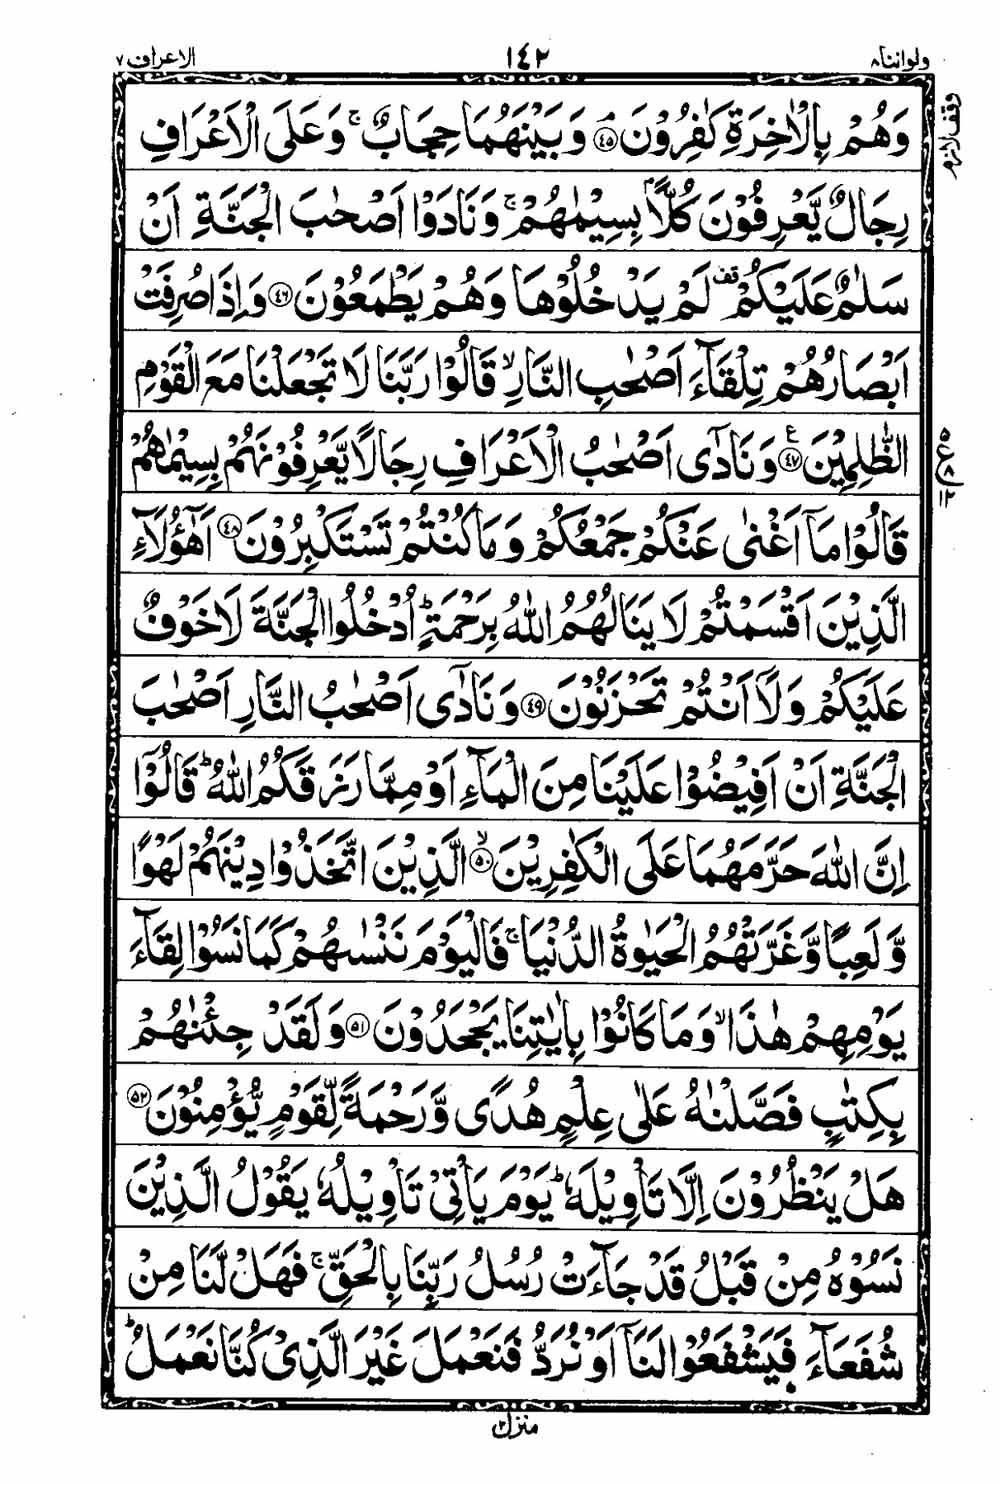 ولواننا ٨ ١٤٢ الاعراف ٧
وَهُمْ بِالْاٰخِرَةِ كٰفِرُوْنَ ۘ ﴿٤٥﴾ وَبَيْنَهُمَا حِجَابٌ ۚ وَعَلَى الْاَعْرَافِ
وقف لازم
رِجَالٌ يَّعْرِفُوْنَ كُلًّاۢ بِسِيْمٰىهُمْ ۚ وَنَادَوْا اَصْحٰبَ الْجَنَّةِ اَنْ
سَلٰمٌ عَلَيْكُمْ ۣ لَمْ يَدْخُلُوْهَا وَهُمْ يَطْمَعُوْنَ ﴿٤٦﴾ وَاِذَا صُرِفَتْ
اَبْصَارُهُمْ تِلْقَآءَ اَصْحٰبِ النَّارِ ۙ قَالُوْا رَبَّنَا لَا تَجْعَلْنَا مَعَ الْقَوْمِ
الظّٰلِمِيْنَ ﴿٤٧﴾ ع وَنَادٰٓى اَصْحٰبُ الْاَعْرَافِ رِجَالًا يَّعْرِفُوْنَهُمْ بِسِيْمٰىهُمْ
٥ ع ٨ ١٢
قَالُوْا مَآ اَغْنٰى عَنْكُمْ جَمْعُكُمْ وَمَا كُنْتُمْ تَسْتَكْبِرُوْنَ ﴿٤٨﴾ اَهٰٓؤُلَآءِ
الَّذِيْنَ اَقْسَمْتُمْ لَا يَنَالُهُمُ اللّٰهُ بِرَحْمَةٍ ؕ اُدْخُلُوا الْجَنَّةَ لَا خَوْفٌ
عَلَيْكُمْ وَلَآ اَنْتُمْ تَحْزَنُوْنَ ﴿٤٩﴾ وَنَادٰٓى اَصْحٰبُ النَّارِ اَصْحٰبَ
الْجَنَّةِ اَنْ اَفِيْضُوْا عَلَيْنَا مِنَ الْمَآءِ اَوْ مِمَّا رَزَقَكُمُ اللّٰهُ ؕ قَالُوْٓا
اِنَّ اللّٰهَ حَرَّمَهُمَا عَلَى الْكٰفِرِيْنَ ۙ ﴿٥٠﴾ الَّذِيْنَ اتَّخَذُوْا دِيْنَهُمْ لَهْوًا
وَّلَعِبًا وَّغَرَّتْهُمُ الْحَيٰوةُ الدُّنْيَا ۚ فَالْيَوْمَ نَنْسٰىهُمْ كَمَا نَسُوْا لِقَآءَ
يَوْمِهِمْ هٰذَا ۙ وَمَا كَانُوْا بِاٰيٰتِنَا يَجْحَدُوْنَ ﴿٥١﴾ وَلَقَدْ جِئْنٰهُمْ
بِكِتٰبٍ فَصَّلْنٰهُ عَلٰى عِلْمٍ هُدًى وَّرَحْمَةً لِّقَوْمٍ يُّؤْمِنُوْنَ ﴿٥٢﴾
هَلْ يَنْظُرُوْنَ اِلَّا تَاْوِيْلَهٗ ؕ يَوْمَ يَاْتِيْ تَاْوِيْلُهٗ يَقُوْلُ الَّذِيْنَ
نَسُوْهُ مِنْ قَبْلُ قَدْ جَآءَتْ رُسُلُ رَبِّنَا بِالْحَقِّ ۚ فَهَلْ لَّنَا مِنْ
شُفَعَآءَ فَيَشْفَعُوْا لَنَآ اَوْ نُرَدُّ فَنَعْمَلَ غَيْرَ الَّذِيْ كُنَّا نَعْمَلُ ؕ
منزل ٢